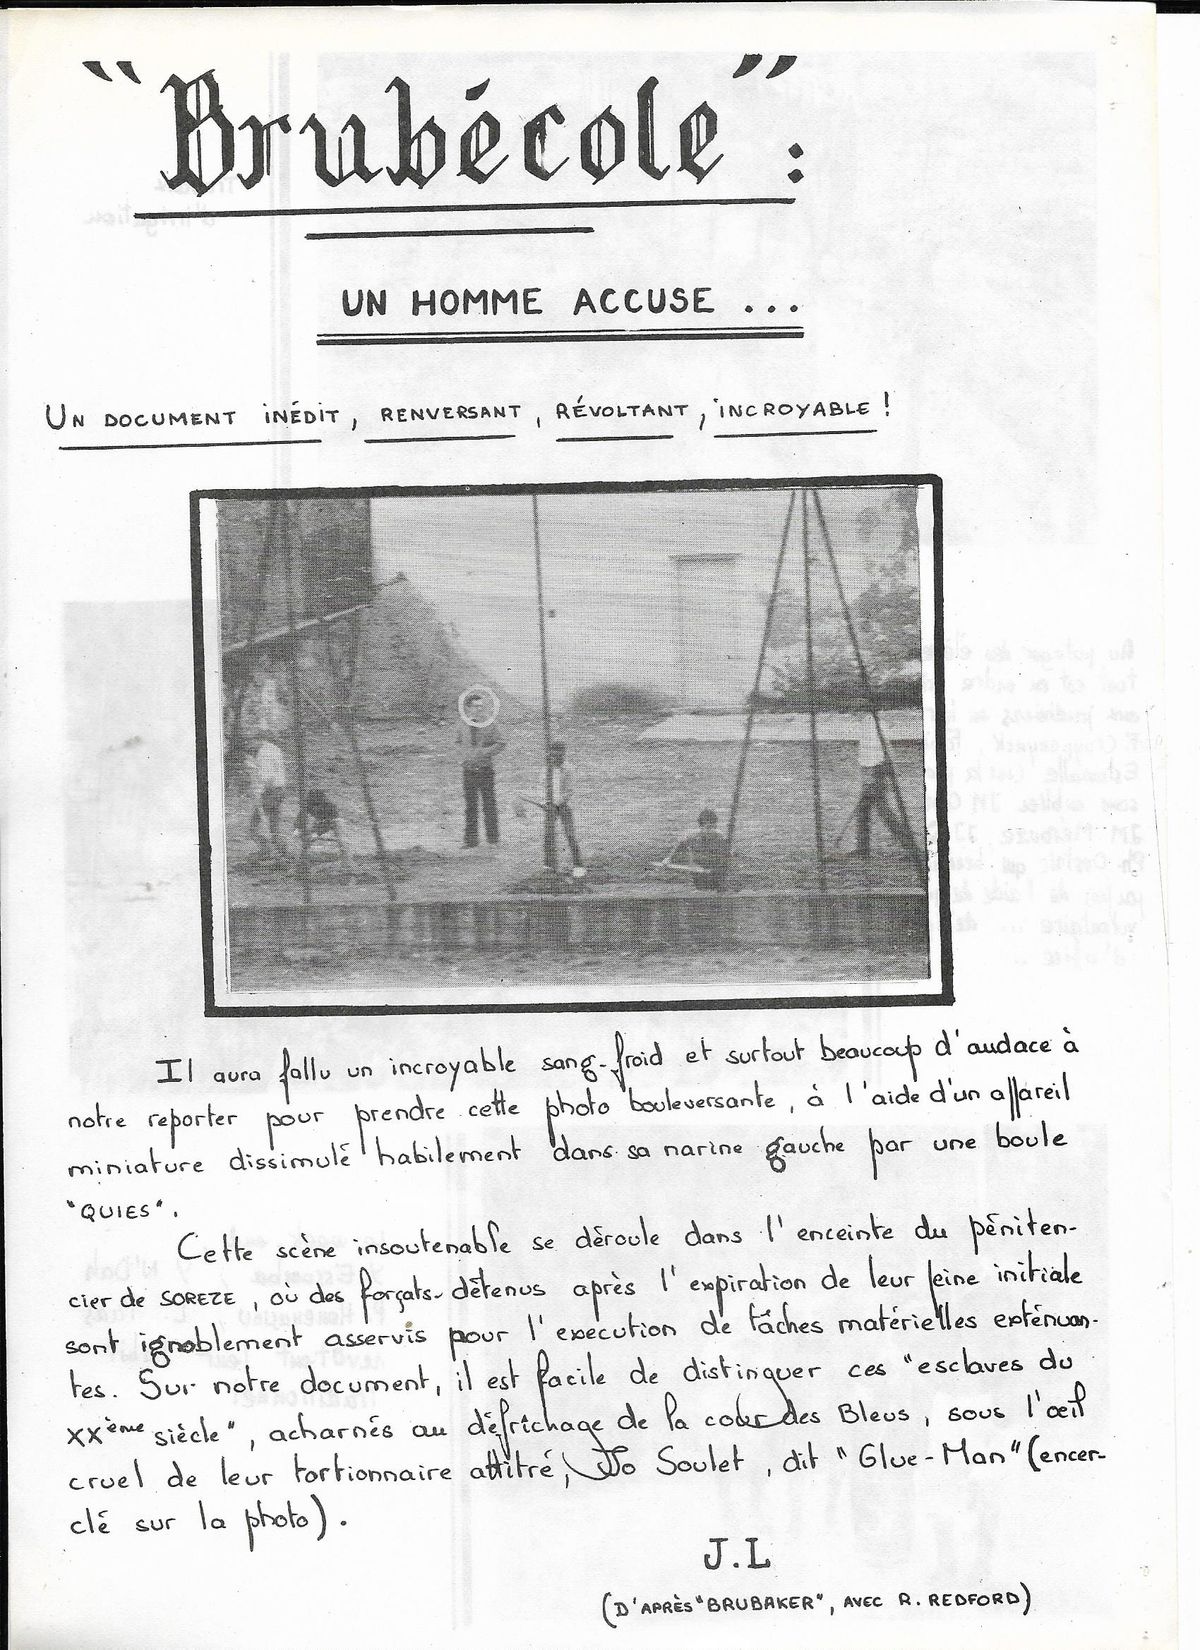 "Brubécole" :
UN HOMME ACCUSE ...
UN DOCUMENT INÉDIT, RENVERSANT, RÉVOLTANT, INCROYABLE !
Il aura fallu un incroyable sang-froid et surtout beaucoup d'audace à
notre reporter pour prendre cette photo bouleversante, à l'aide d'un appareil
miniature dissimulé habilement dans sa narine gauche par une boule
"QUIES".
Cette scène insoutenable se déroule dans l'enceinte du péniten-
cier de SOREZE, où des forçats détenus après l'expiration de leur peine initiale
sont ignoblement asservis pour l'execution de tâches matérielles exténuan-
tes. Sur notre document, il est facile de distinguer ces "esclaves du
XXème siècle", acharnés au défrichage de la cour des Bleus, sous l'œil
cruel de leur tortionnaire attitré, Jo Soulet, dit "Glue-Man" (encer-
clé sur la photo).
J.L
(D'APRÈS "BRUBAKER", AVEC R. REDFORD)